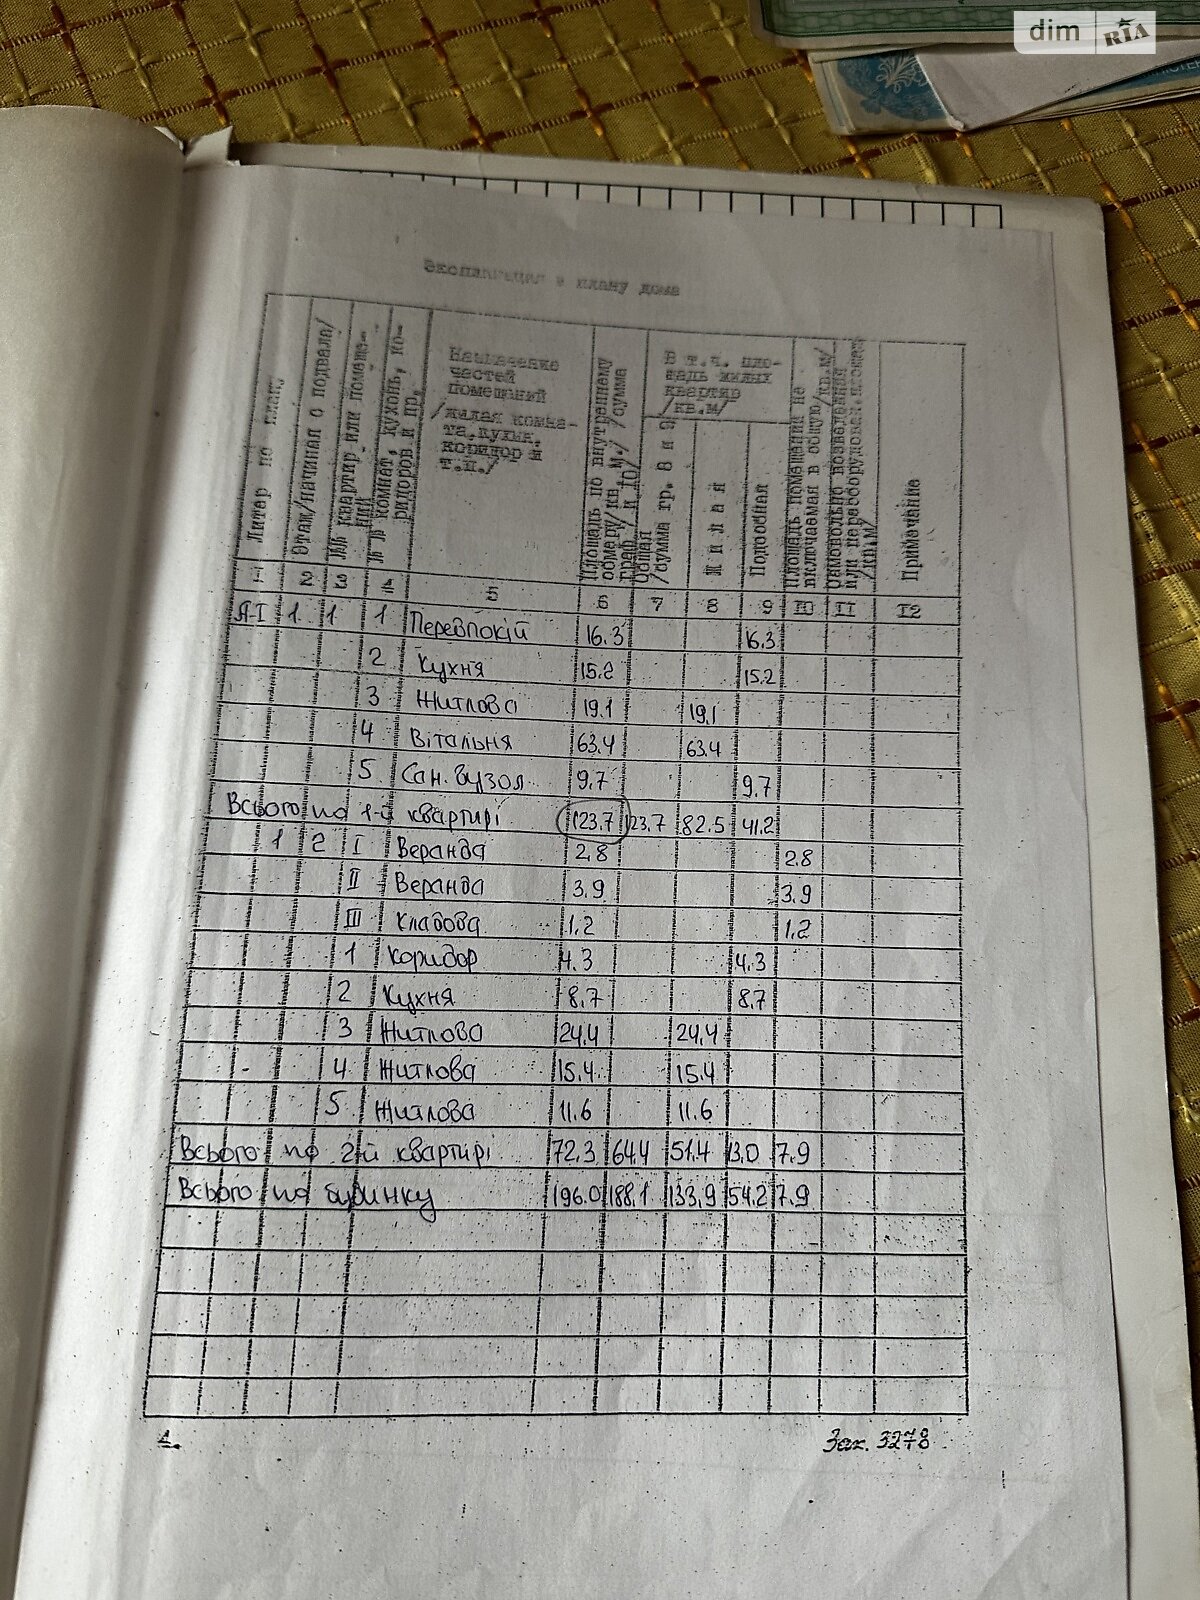 dim RIA
Экспликация к плану дома
Литер по плану
Этаж/начиная с подвала/
№№ квартир или помещений
№№ комнат, кухонь, коридоров и пр.
Назначение частей помещений /жилая комната, кухня, коридор и т.п./
Площадь по внутреннему обмеру/кв.м./ /сумма граф. 7 и 10/
В т.ч. площадь жилых квартир /кв.м/
Общая /сумма гр. 8 и 9/
Жилая
Подсобная
Площадь помещений не включаемая в общую/кв.м/
Самовольно возведенная или переоборудован. площадь /кв.м/
Примечание
1 2 3 4 5 6 7 8 9 10 11 12
А-І 1 1 1 Передпокій 16.3 16.3
2 Кухня 15.2 15.2
3 Житлова 19.1 19.1
4 Вітальня 63.4 63.4
5 Сан. вузол 9.7 9.7
Всього по 1-й квартирі 123.7 123.7 82.5 41.2
1 2 I Веранда 2.8 2.8
II Веранда 3.9 3.9
III Кладова 1.2 1.2
1 Коридор 4.3 4.3
2 Кухня 8.7 8.7
3 Житлова 24.4 24.4
4 Житлова 15.4 15.4
5 Житлова 11.6 11.6
Всього по 2-й квартирі 72.3 64.4 51.4 13.0 7.9
Всього по будинку 196.0 188.1 133.9 54.2 7.9
Зак. 3278